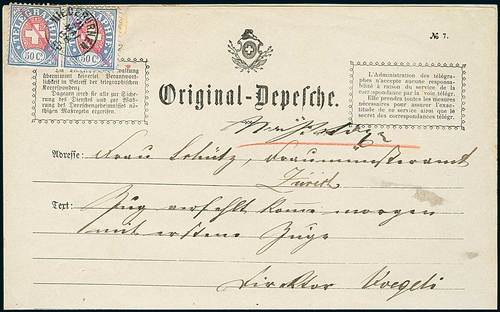 TELEGRAPHIE
50 C.
50 C.
№ 7.
Verwaltung
übernimmt keinerlei Verantwortlichkeit
der telegraphischen
Korrespondenz.
Dagegen wird sie alle zur Sicherung
des Dienstes und zur Wahrung
des Depeschengeheimnisses nöthigen
Massregeln ergreifen.
L'Administration des télégraphes
n'accepte aucune responsabilité
à raison du service de la
correspondance par la voie télégr.
Elle prendra toutes les mesures
nécessaires pour assurer l'exactitude
de ce service ainsi que le
secret des correspondances télégr.
Original-Depesche.
Adresse: Frau Schütz, Fraumünsteramt
Zürich
Text: Zug verfehlt kome morgen
mit erstem Zuge
Direktor Voegeli